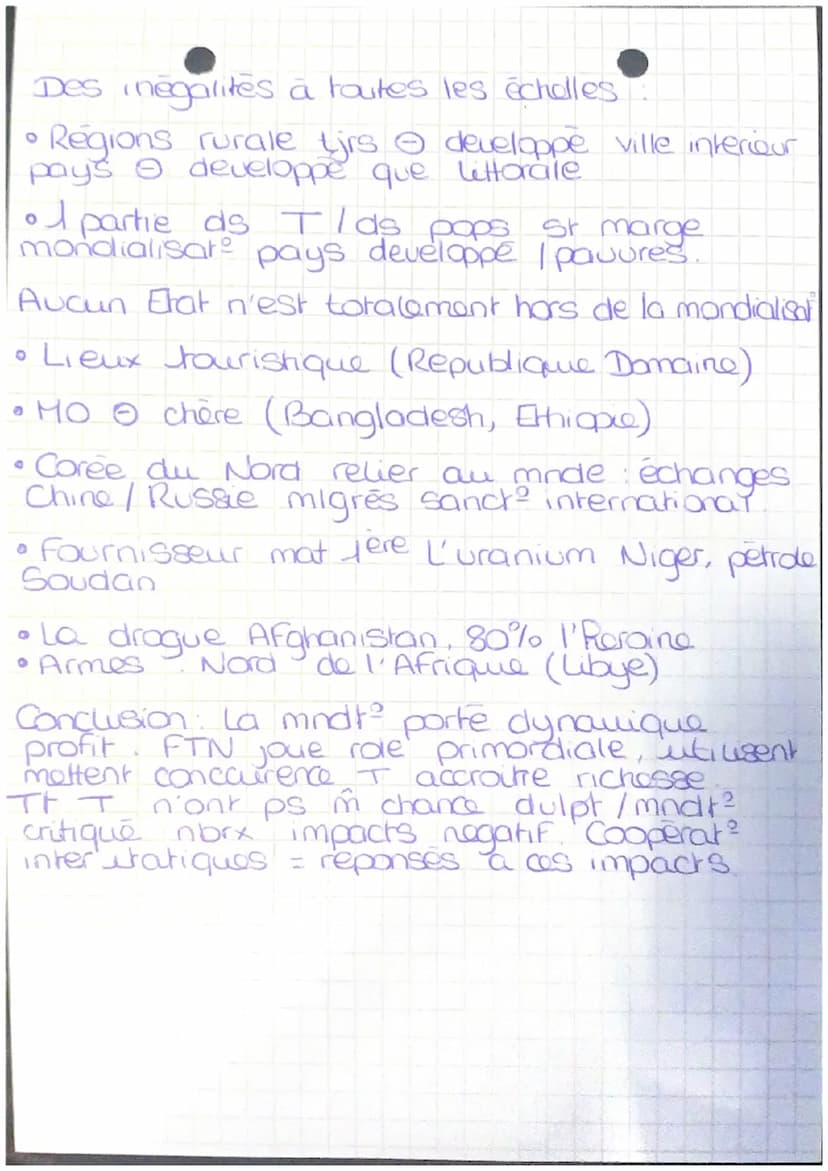 Des inégalités à toutes les échelles :
• Régions rurale tjrs ⊖ developpé ville interieur
pays ⊖ developpé que littorale
• 1 partie ds T / ds pops st marge
mondialisat° pays developpé / pauvres.
Aucun Etat n'est totalement hors de la mondialisat°
• Lieux touristique (Republique Domaine)
• MO ⊖ chère (Bangladesh, Ethiopie)
• Corée du Nord relier au mnde : échanges
Chine / Russie migrés sanct° international
• Fournisseur mat 1ère L'uranium Niger, pétrole
Soudan
• La drogue Afghanistan, 80% l'Heroine
• Armes : Nord de l'Afrique (Libye)
Conclusion : La mndt° porté dynamique
profit. FTN joue role primordiale, utilisent
mettent concurence T accroitre richesse.
Tt T n'ont ps m̂ chance dvlpt / mndt°
critiqué nbrx impacts negatif. Coopérat°
inter'etatiques = réponses à ces impacts.